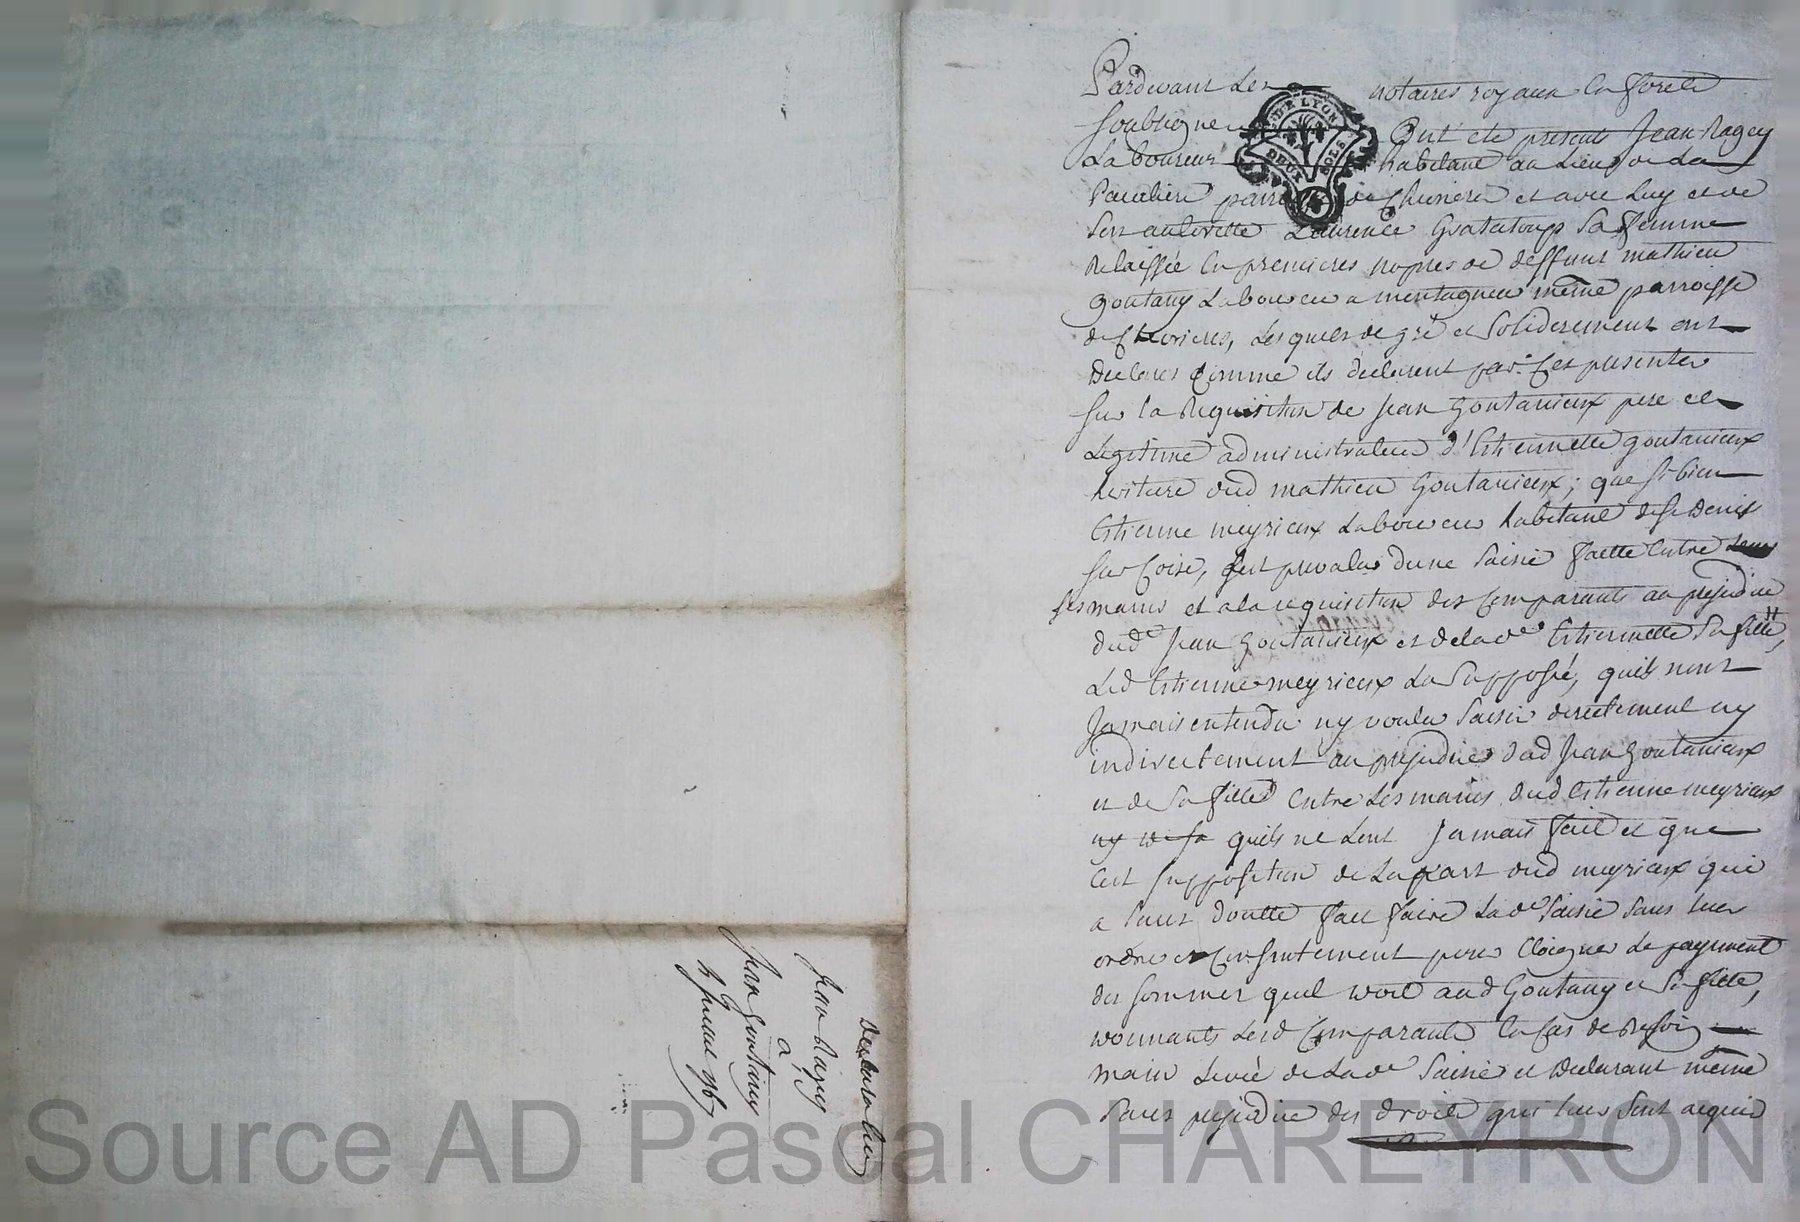 Pardevant Les notaires royaux En forest
soubsigne Ont été presents Jean Ragey
Laboureur habitant au Lieu de La
parroisse de Chevrieres et avec Luy et de
Son authorité Laurence Gratatoup Sa femme
Relaissée En premieres nopces de deffunt mathieu
goutany Laboureur a montagneu même parroisse
de Chevrieres, Lesquels de gré et Solidairement ont
Declarés Comme ils declarent par Ces presentes
Sur la Requisition de Jean goutanieux pere et
Legitime administrateur d'Estiennette goutanieux
heritiere dud mathieu Goutanieux; que Si bien
Estienne meyrieux Laboureur habitant de St Denis
Sur Coise, Sest prevalu dune Saisie faette Entre
Ses mains et a la requisition des Comparants au prejudice
dud Jean Goutanieux et de lade Estiennette Sa fille,
Led Estienne meyrieux La Supposé, quils nont
Jamais entendu ny voulu Saisir directement ny
indirectement au prejudice dud Jean Goutanieux
et de Sa fille Entre Les mains dud Estienne meyrieux
quils ne Lont Jamais fait et que
Cest supposition de La part dud meyrieux qui
a Sans doutte fait faire Lade Saisie Sans leur
ordre et Consentement pour Eloigner Le payement
des sommes quil doit aud Goutany et Sa fille,
Donnants Lesd Comparants En Cas de Besoin
main Levée de Lade Saisie et Declarant même
Sans prejudice des droits qui leur Sont acquis
Declaration
Jean Ragey
a
Jean Goutany
Source AD Pascal CHAREYRON
DE LYON
DEUX SOLS